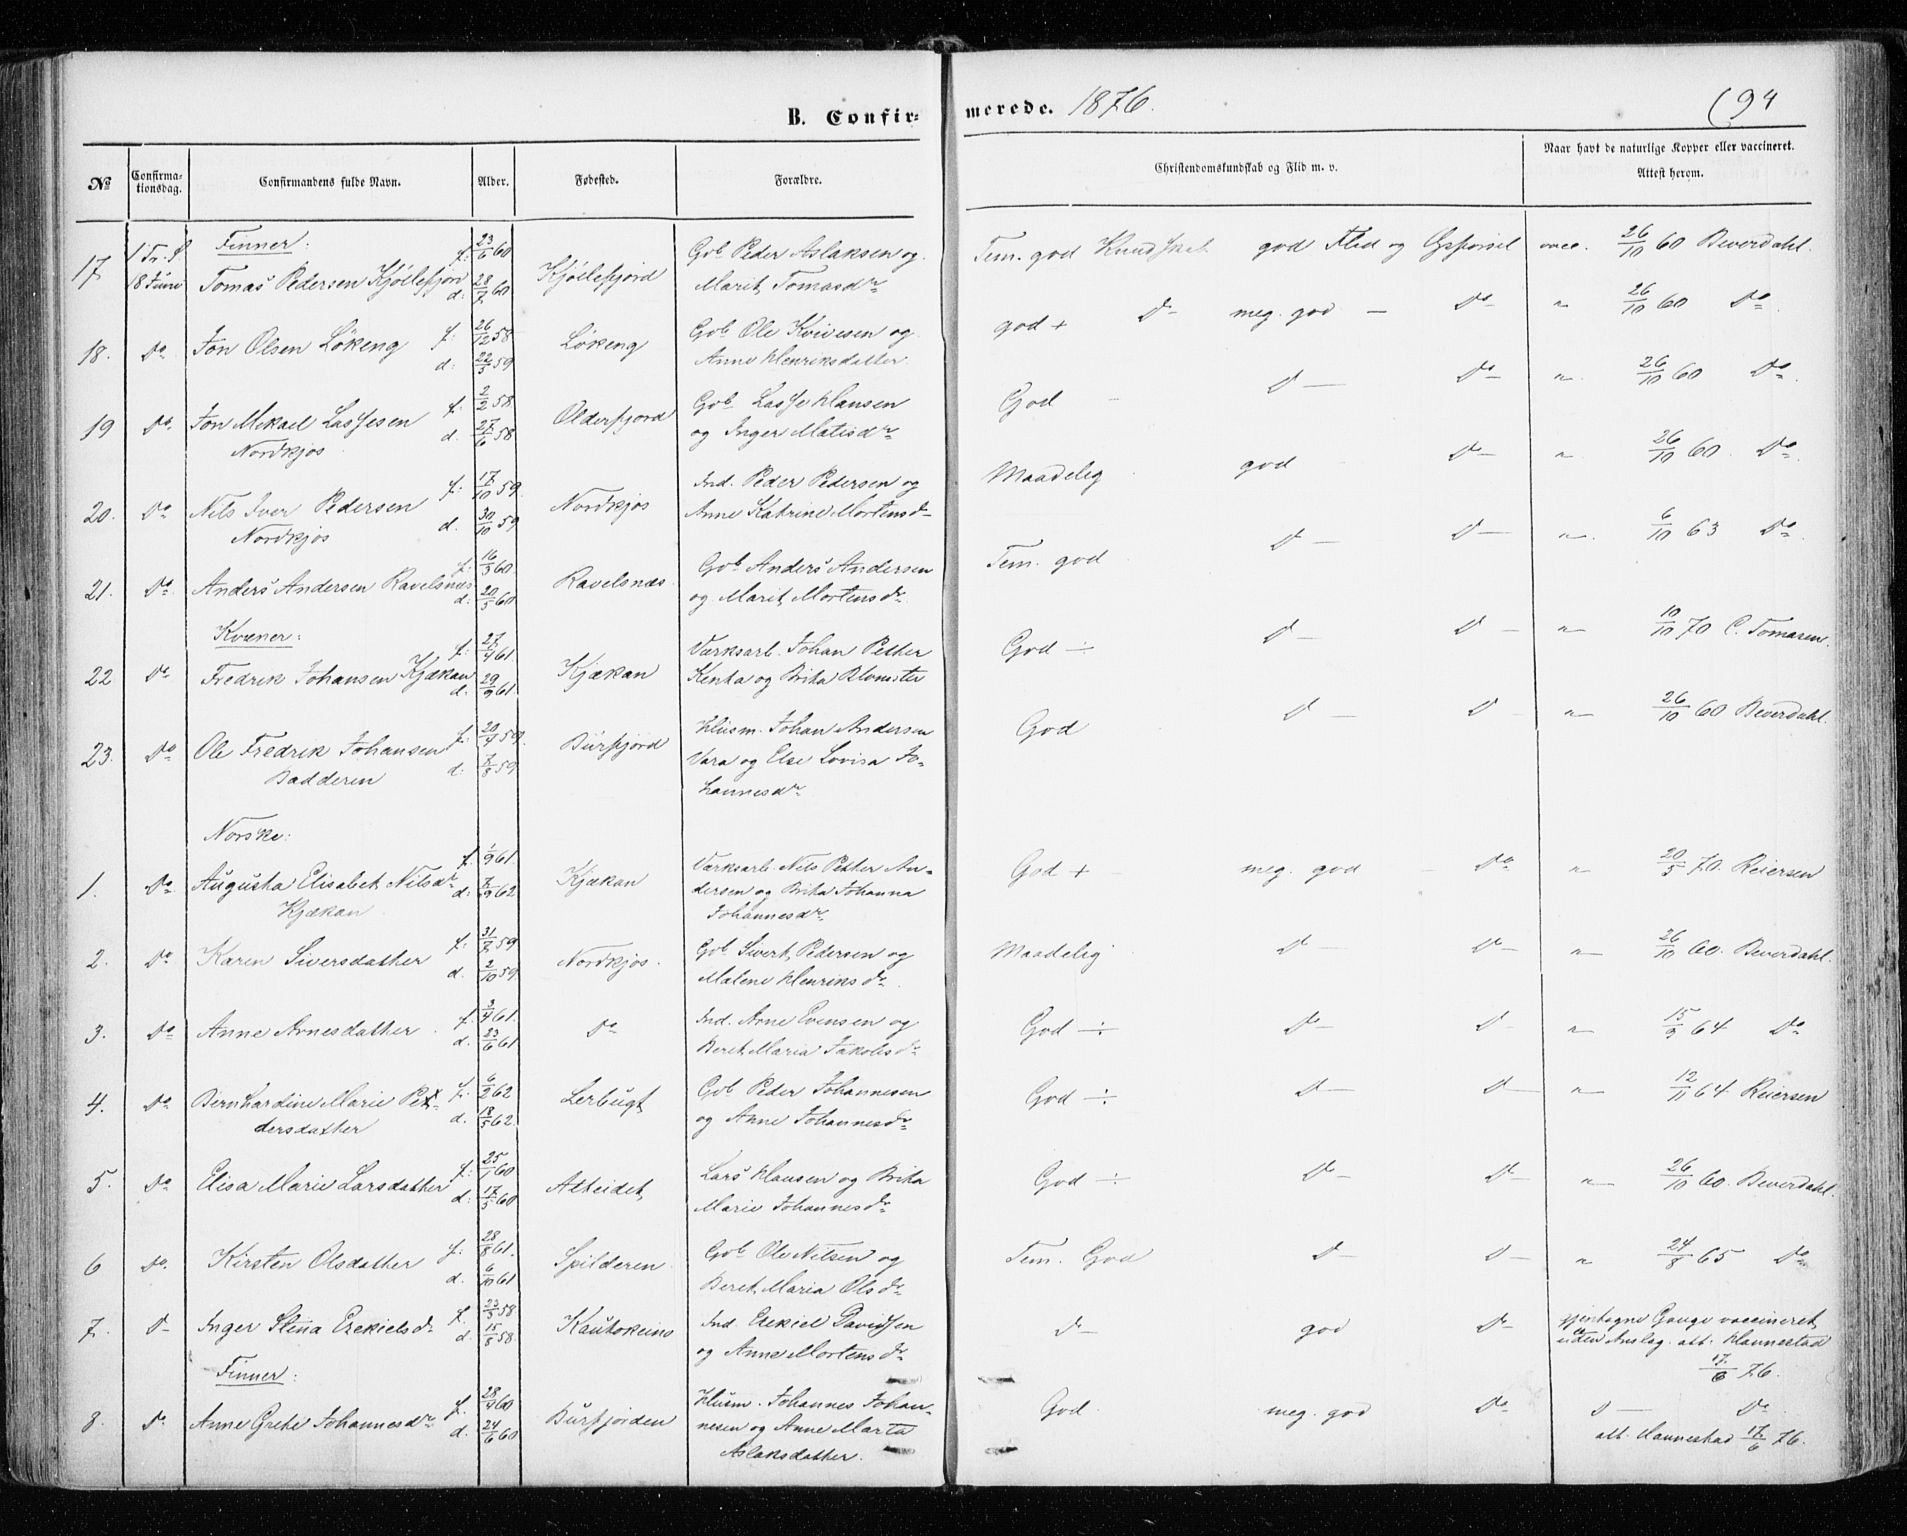 B. Confir-
merede. 1876.
94
No
Confirma-
tionsdag.
Confirmandens fulde Navn.
Alder.
Fødested.
Forældre.
Christendomskundskab og Flid m. v.
Naar havt de naturlige Kopper eller vaccineret.
Attest herom.
Finner:
17 18 Juni Tomas Pedersen Kjöllefjord f. 23/6 60 d. 28/7 60 Kjöllefjord Gob Peder Aslaksen og
Marit Tomasdr
Tem. god Kundskab god Flid og Opførsel vacc. 26/10 60 Beverdahl.
18. Do Jon Olsen Lökeng f. 26/12 58 d. 22/5 59 Lökeng Gob Ole Kvivesen og
Anne Henriksdatter.
god + Do meg. god — Do " 26/10 60 Do
19 Do Jon Mikael Lassesen f. 2/2 58 d. 27/6 58 Olderfjord Gob Lasse Hansen
Nordkjos og Inger Matisdr
God D — Do " 26/10 60 Do
20. Do Nils Iver Pedersen f. 17/10 59. d. 30/10 59 Nordkjos Ind. Peder Pedersen og
Nordkjos Anne Katrine Mortensd
Maadelig god Do " 26/10 60. Do
21. Do Anders Andersen Ravelsnæs f. 16/3 60. d. 20/5 60 Ravelsnæs Gob Anders Andersen
og Marit Mortensdr.
Tem. god D — D — " 6/10 63 Do
Kvæner:
22 Do Fredrik Johansen Kjækan f. 27/4 61 d. 29/9 61 Kjækan Værksarb. Johan Petter
Kenta og Brita Blomster
God ÷ D — D — " 10/10 70 C. Tomasen.
23. Do Ole Fredrik Johansen f. 20/4 59. d. 7/8 59 Burfjord Husm. Johan Andersen
Badderen Vara og Else Lovisa Jo-
hannesdr
God D — D — " 26/10 60 Beverdahl.
Norske:
1. Do Augusta Elisabet Nilsdr f. 1/9 61 d. 7/9 62 Kjækan Værksarb. Nils Petter An-
Kjækan dersen og Brita Johanna
Johannesdr.
God + meg. god — Do " 20/5 70. Reiersen
2. Do Karen Siversdatter f. 31/7 59 d. 2/10 59 Nordkjos. Gob Sivert Pedersen og
Malene Henriksdr.
Maadelig D — Do " 26/10 60. Beverdahl.
3. Do Anne Arnesdatter f. 3/4 61. d. 23/6 61 Do Ind. Arne Evensen og
Beret Maria Jakobsdr
God ÷ Do D — " 15/9 64 Do
4. Do Bernhardine Marie Pe- f. 6/2 62 d. 18/5 62. Lerbugt Gob Peder Johannesen
dersdatter og Anne Johannesdr
God ÷ D — D — " 12/11 64 Reiersen
5. Do Elisa Marie Larsdatter f. 25/1 60 d. 17/5 60 Alteidet Lars Hansen og Brita
Marie Johannesdr
God ÷ D — D — " 26/10 60. Beverdahl.
6 Do Kirsten Olsdatter f. 28/8 61. d. 6/10 61 Spilderen Gob Ole Nilsen og
Beret Maria Olsdr
Tem. God D — D — " 24/8 65 Do
7. D Inger Stina Ezekielsd f. 23/3 58. d. 15/8 58. Kautokeino Ind Ezekiel Davidsen
og Anne Mortensdr
D god Do gjentagne Gange vaccineret
uden Anslag. att. Hannestad
17/6 76.
Finner:
8. Do Anne Grete Johannesdr f. 28/4 60 d. 24/6 60 Burfjorden Husm. Johannes Johan-
nesen og Anne Marta
Aslaksdatter.
God. meg. god Do D — Do
att. Hannestad 17/6 76.